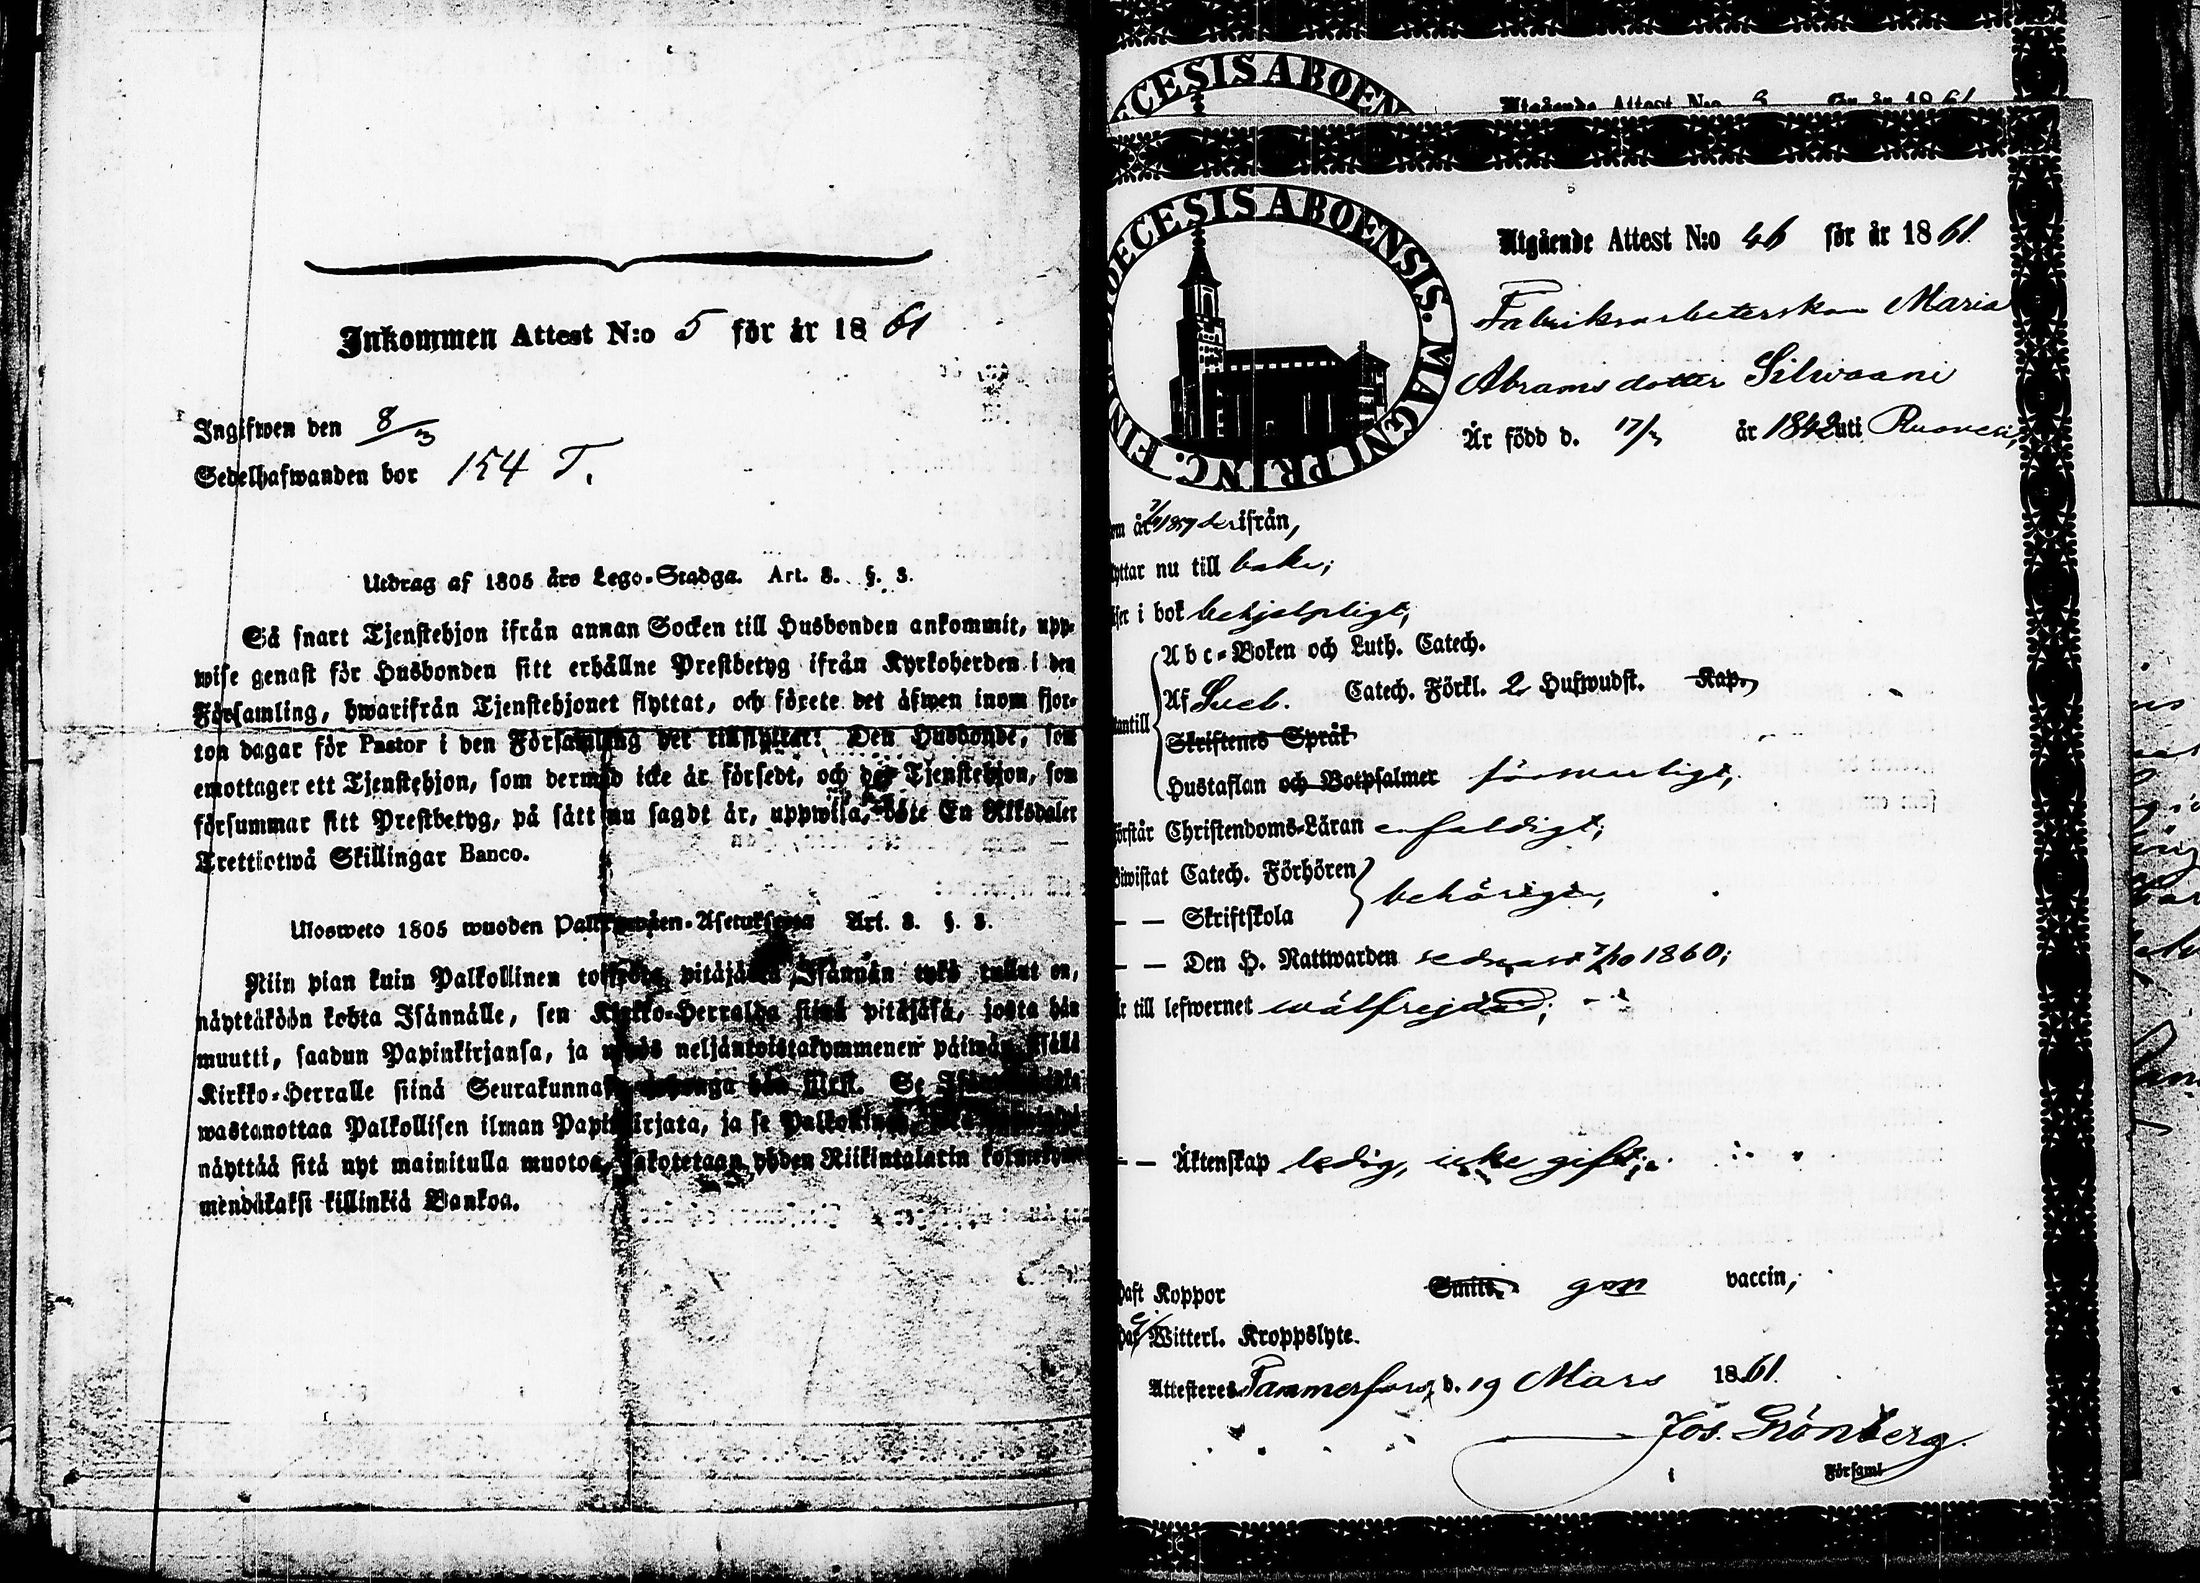 Inkommen Attest N:o 5 för år 1861
Ingifwen den 8/3
Sedelhafwanden bor 154 T.
Utdrag af 1805 års Lego-Stadga. Art. 8. §. 3.
Så snart Tjenstehjon ifrån annan Socken till Husbonden ankommit, upp-
wise genast för Husbonden sitt erhållne Prestbetyg ifrån Kyrkoherden i den
Församling, hwarifrån Tjenstehjonet flyttat, och förete det äfwen inom fjor-
ton dagar för Pastor i den Församling det tillflyttat: Den Husbonde, som
emottager ett Tjenstehjon, som dermed icke är försedt, och det Tjenstehjon, som
försummar sitt Prestbetyg, på sätt nu sagdt är, uppwisa, böte En Riksdaler
Trettiotwå Skillingar Banco.
Ulosweto 1805 wuoden Palkkawäen-Asetuksesta Art. 8. §. 3.
Niin pian kuin Palkollinen toisesta pitäjästä Isännän tykö tullut on,
näyttäköön kohta Isännälle, sen Kirkko-Herralda siinä pitäjäsä, josta hän
muutti, saadun Papinkirjansa, ja myös neljäntoistakymmenen päiwän sisällä
Kirkko-Herralle siinä Seurakunnassa, Se
wastanottaa Palkollisen ilman Papinkirjata, ja se Palkollinen,
näyttää sitä nyt mainitulla muotoa, sakotetaan yhden Riikintalarin kolmekym-
mendäkaksi killinkiä Bankoa.
DIOECESIS ABOENSIS. MAGNI PRINC. FIN
ECESIS ABOEN
Utgående Attest N:o 5 för år 1861
Utgående Attest N:o 46 för år 1861.
Fabriksarbeterskan Maria
Abramsdotter Silwaani
Är född d. 17/3 år 1842 uti Ruovesi,
om år 1857 derifrån,
yttar nu till baka;
äser i bok behjelpligt,
Abc-Boken och Luth. Catech.
Af Sveb. Catech. Förkl. 2 Hufwudst. Kap.
antill
Skriftenes Språk
Hustaflan och Botpsalmer försvarligt,
örstår Christendoms-Läran enfaldigt;
Biwistat Catech. Förhören
behörigen,
— — Skriftskola
— — Den H. Nattwarden sednast 7/10 1860;
Är till lefwernet wälfrejdad;
— — Äktenskap ledig, icke gift;
haft Koppor Smitt. gen vaccin,
Har ej Witterl. Kroppslyte.
Attesteres Tammerfors, d. 19 Mars 1861.
Jos. Grönberg.
Församl